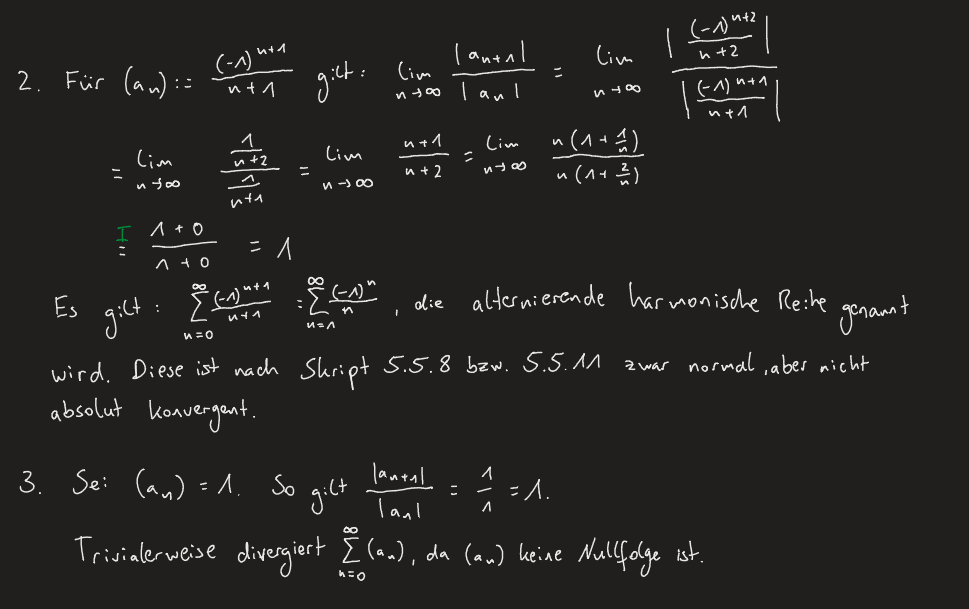 2. Für (aₙ) := (-1)^{n+1}/(n+1) gilt: lim_{n→∞} |aₙ₊₁|/|aₙ| = lim_{n→∞} |(-1)^{n+2}/(n+2)| / |(-1)^{n+1}/(n+1)|
= lim_{n→∞} (1/(n+2))/(1/(n+1)) = lim_{n→∞} (n+1)/(n+2) = lim_{n→∞} n(1+1/n)/n(1+2/n)
I= (1+0)/(1+0) = 1
Es gilt: ∑_{n=0}^{∞} (-1)^{n+1}/(n+1) = ∑_{n=1}^{∞} (-1)^n/n, die alternierende harmonische Reihe genannt
wird. Diese ist nach Skript 5.5.8 bzw. 5.5.11 zwar normal, aber nicht
absolut konvergent.
3. Sei (aₙ) = 1. So gilt |aₙ₊₁|/|aₙ| = 1/1 = 1.
Trivialerweise divergiert ∑_{n=0}^{∞} (aₙ), da (aₙ) keine Nullfolge ist.